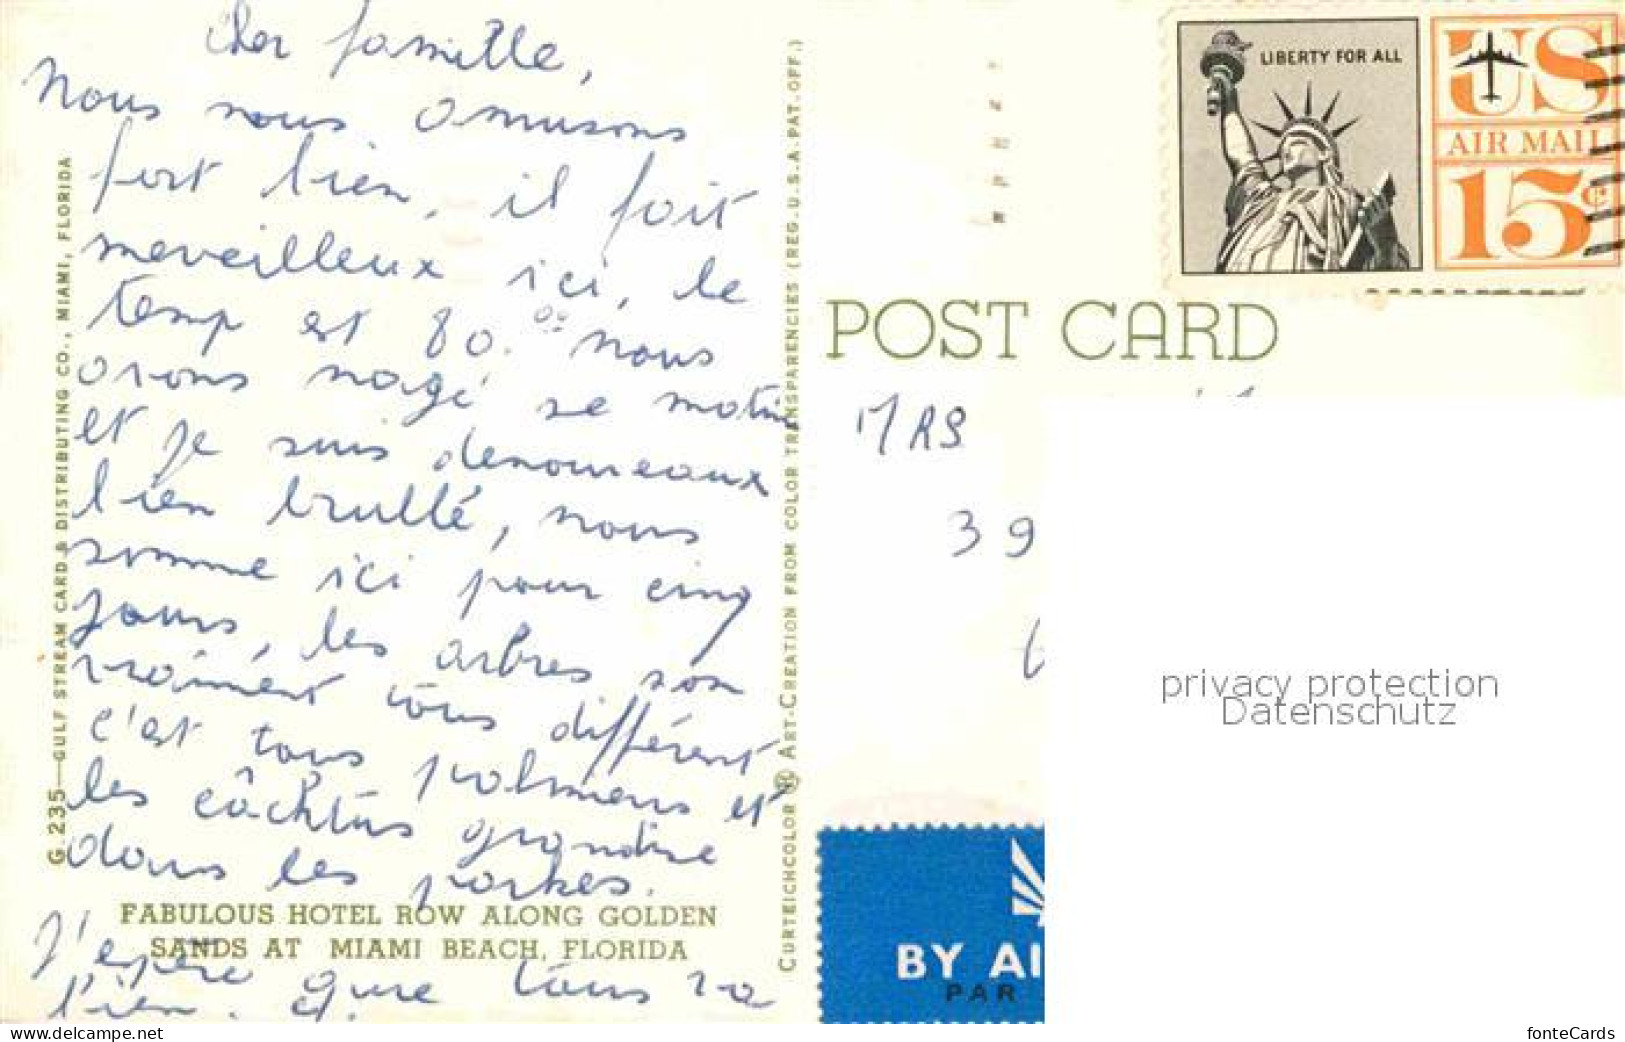 Cher famille,
Nous nous amusons
fort bien, il fait
merveilleux ici, le
temp est 80.°° nous
avons nagé se matin
et je suis denouveaux
bien brullé, nous
somme ici pour cinq
jours, les arbres son
vraiment tous différent
c'est tous palmiers et
les câchtus grandise
dans les parkes.
J'espère que tous va
bien.
FABULOUS HOTEL ROW ALONG GOLDEN
SANDS AT MIAMI BEACH, FLORIDA
G.235—GULF STREAM CARD & DISTRIBUTING CO., MIAMI, FLORIDA
CURTEICHCOLOR ® ART-CREATION FROM COLOR TRANSPARENCIES (REG. U.S.A. PAT. OFF.)
LIBERTY FOR ALL
US
AIR MAIL
15¢
POST CARD
MRS
39
privacy protection
Datenschutz
BY AI
PAR
www.delcampe.net
fonteCards